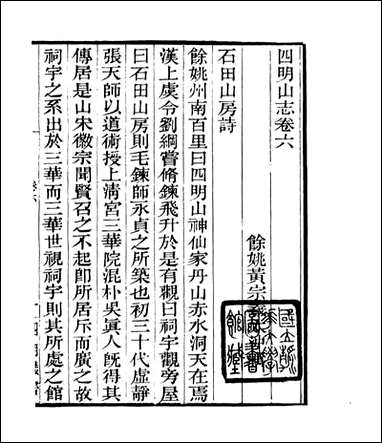 四明山志卷六
餘姚黃宗
石田山房詩
餘姚州南百里曰四明山神仙家丹山赤水洞天在焉
漢上虞令劉綱嘗脩鍊飛升於是有觀曰祠宇觀旁屋
曰石田山房則毛鍊師永貞之所築也初三十代虛靜
張天師以道術授上淸宮三華院混朴吳眞人旣得其
傳居是山宋徽宗聞賢召之不起卽所居斥而廣之故
祠宇之系出於三華而三華世視祠宇則其所處之館